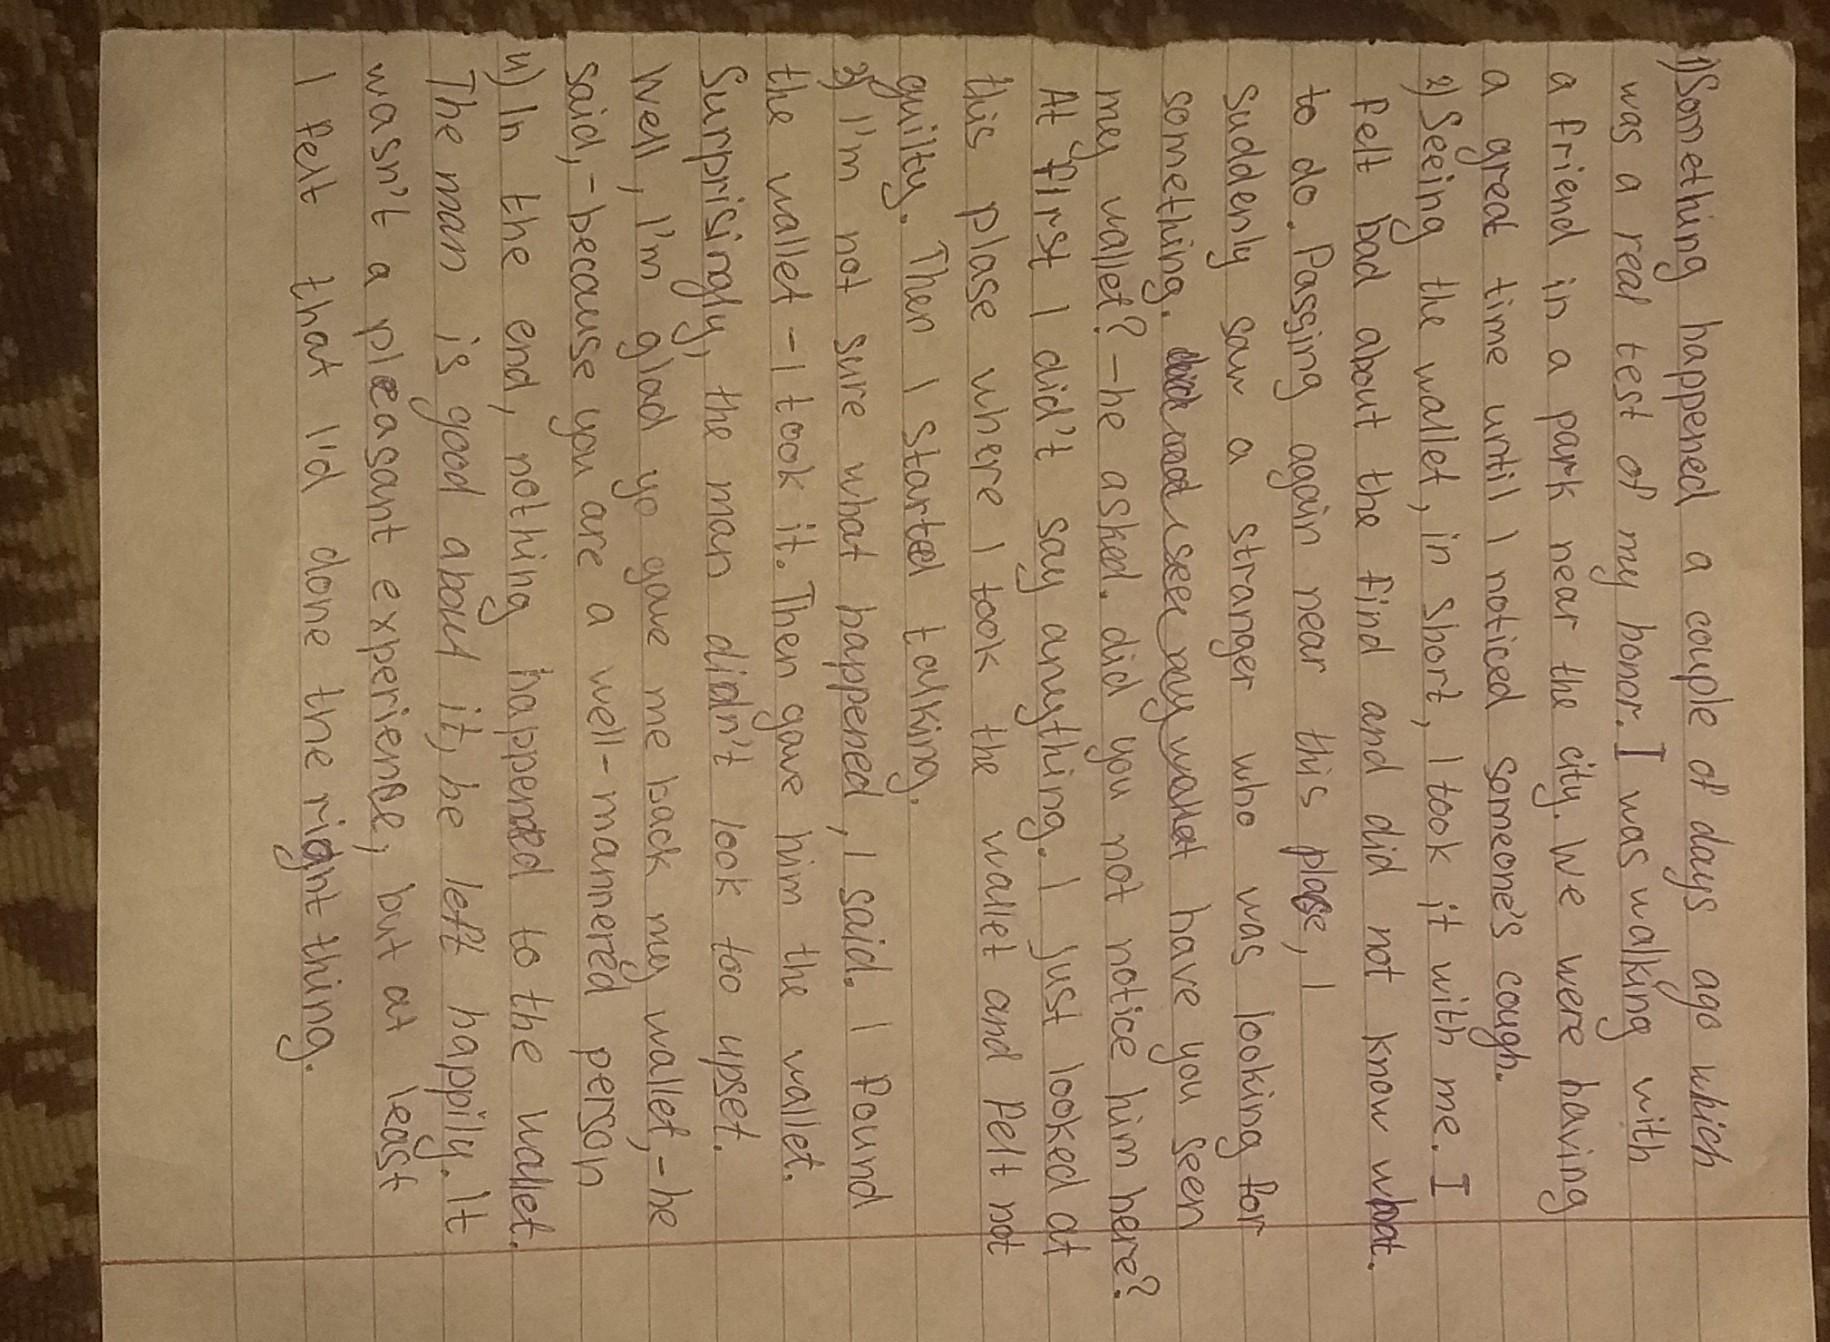 1) Something happened a couple of days ago which
was a real test of my honor. I was walking with
a friend in a park near the city. We were having
a great time until I noticed someone's cough.
2) Seeing the wallet, in short, I took it with me. I
felt bad about the find and did not know what.
to do. Passing again near this place, I
suddenly saw a stranger who was looking for
something. have you seen
my wallet? - he asked. did you not notice him here?
At first I didn't say anything. I just looked at
this plase where I took the wallet and felt not
guilty. Then I started talking.
3) I'm not sure what happened, I said. I found
the wallet - I took it. Then gave him the wallet.
Surprisingly, the man didn't look too upset.
Well, I'm glad yo gave me back my wallet, - he
said, - because you are a well-mannered person
4) In the end, nothing happened to the wallet.
The man is good about it, he left happily. It
wasn't a pleasant experiense, but at least
I felt that I'd done the right thing.